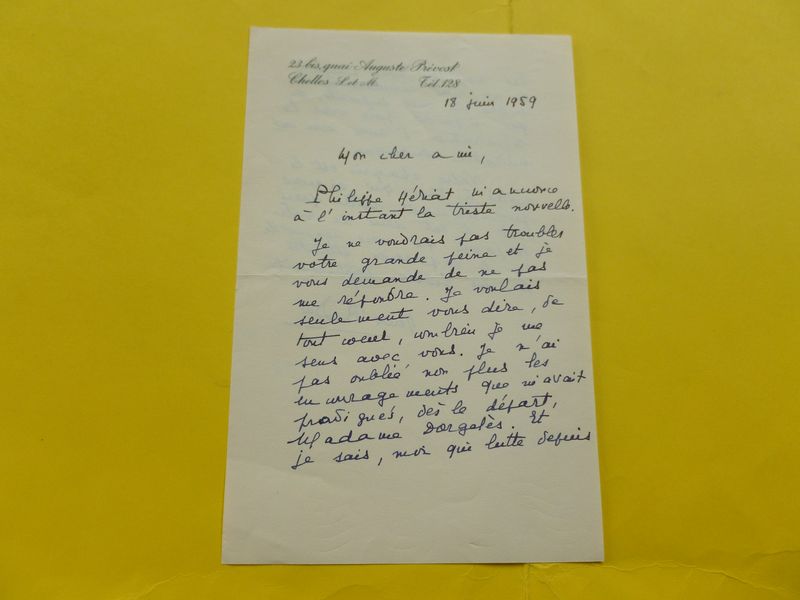 23 bis, quai Auguste Prévost
Chelles S. et M. Tél. 128
18 juin 1959
Mon cher ami,
Philippe Hériat m'annonce
à l'instant la triste nouvelle.
Je ne voudrais pas troubler
votre grande peine et je
vous demande de ne pas
me répondre. Je voulais
seulement vous dire, de
tout coeur, combien je me
sens avec vous. Je n'ai
pas oublié non plus les
encouragements que m'avait
prodigués, dès le départ,
Madame Dorgelès. Et
je sais, moi qui lutte depuis